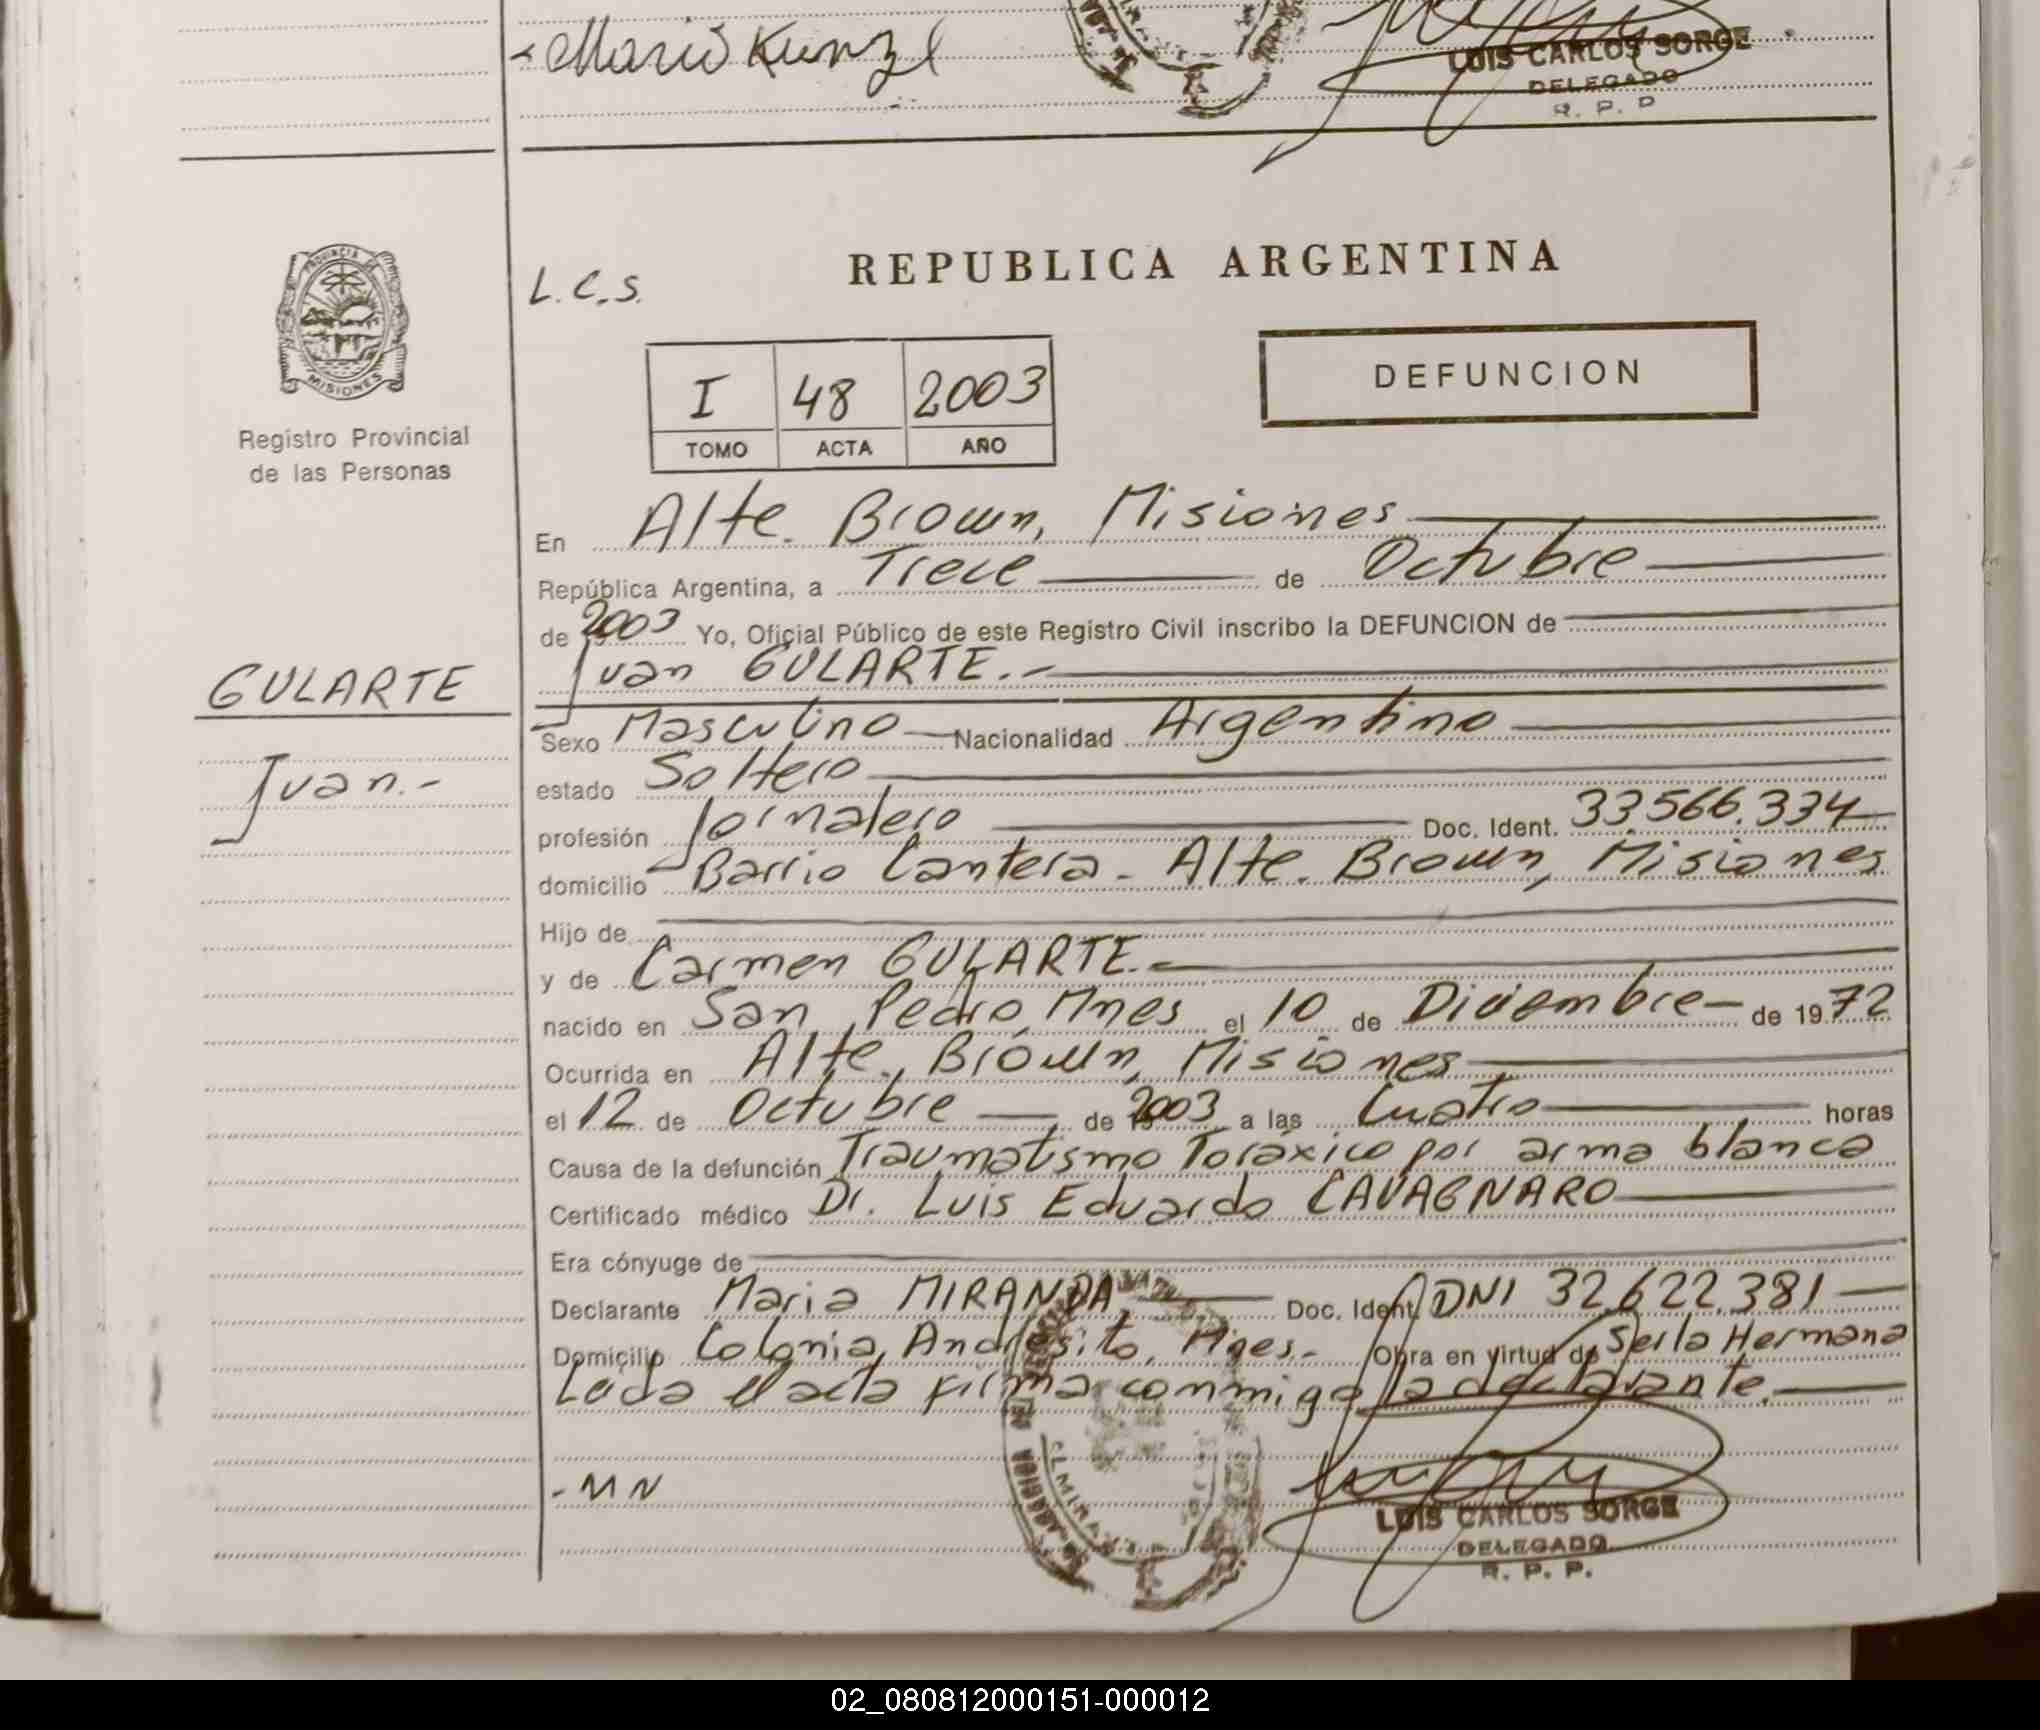 Mario Kunzl
LUIS CARLOS SORGE
DELEGADO
R. P. P
PROVINCIA DE
MISIONES
Registro Provincial
de las Personas
L.C.S.
REPUBLICA ARGENTINA
I 48 2003
TOMO ACTA AÑO
DEFUNCION
En Alte. Brown, Misiones
República Argentina, a Trece de Octubre
de 2003 Yo, Oficial Público de este Registro Civil inscribo la DEFUNCION de
Juan GULARTE.-
GULARTE
Juan.-
Sexo Masculino Nacionalidad Argentino
estado Soltero
profesión Jornalero Doc. Ident. 33.566.334
domicilio Barrio Cantera - Alte. Brown, Misiones
Hijo de
y de Carmen GULARTE.-
nacido en San Pedro, Mnes el 10 de Diciembre de 1972
Ocurrida en Alte. Brown, Misiones
el 12 de Octubre de 2003 a las Cuatro horas
Causa de la defunción Traumatismo Toráxico por arma blanca
Certificado médico Dr. Luis Eduardo CAVAGNARO
Era cónyuge de
Declarante Maria MIRANDA Doc. Ident. DNI 32.622.381
Domicilio Colonia Andresito, Mnes.- Obra en virtud de Ser la Hermana
Leida el acta firma conmigo la declarante.
-MN
LUIS CARLOS SORGE
DELEGADO
R. P. P.
02_080812000151-000012